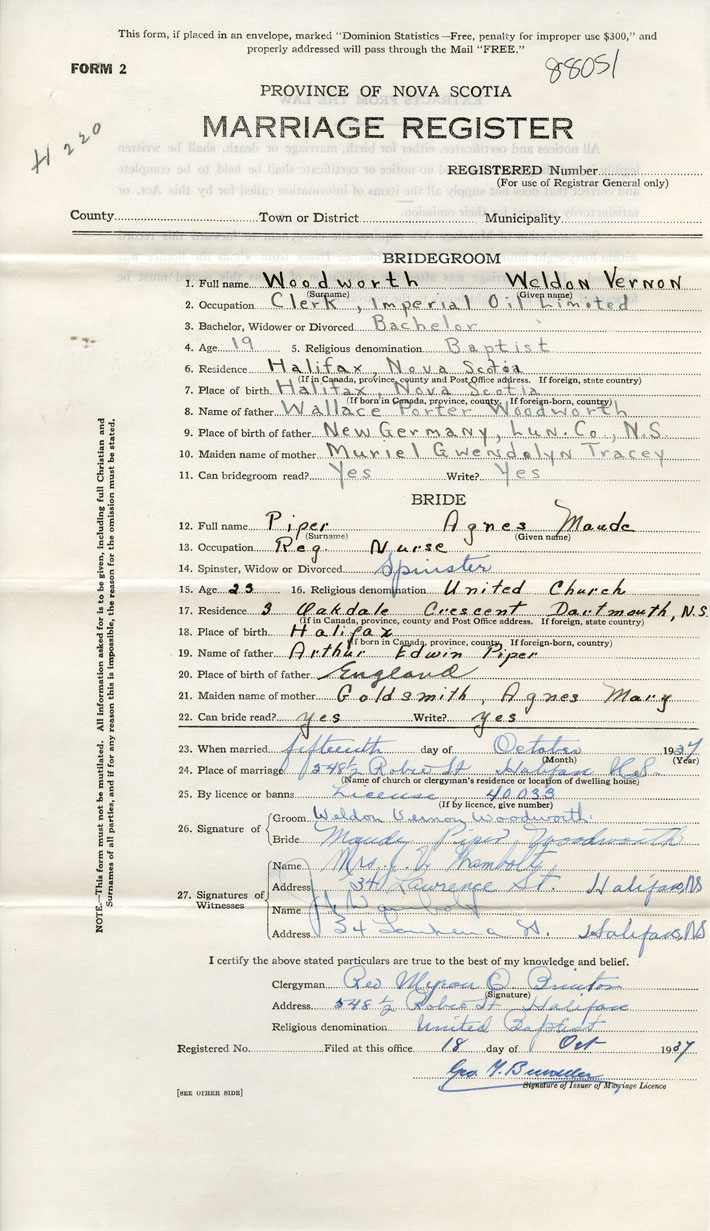 This form, if placed in an envelope, marked "Dominion Statistics—Free, penalty for improper use $300," and
properly addressed will pass through the Mail "FREE."
FORM 2
88051
PROVINCE OF NOVA SCOTIA
MARRIAGE REGISTER
H 220
REGISTERED Number
(For use of Registrar General only)
County Town or District Municipality
BRIDEGROOM
1. Full name Woodworth Weldon Vernon
(Surname) (Given name)
2. Occupation Clerk, Imperial Oil Limited
3. Bachelor, Widower or Divorced Bachelor
4. Age 19 5. Religious denomination Baptist
6. Residence Halifax, Nova Scotia
(If in Canada, province, county and Post Office address. If foreign, state country)
7. Place of birth Halifax, Nova Scotia
(If born in Canada, province, county, If foreign-born, country)
8. Name of father Wallace Porter Woodworth
9. Place of birth of father New Germany, Lun. Co., N.S.
10. Maiden name of mother Muriel Gwendolyn Tracey
11. Can bridegroom read? Yes Write? Yes
BRIDE
12. Full name Piper Agnes Maude
(Surname) (Given name)
13. Occupation Reg. Nurse
14. Spinster, Widow or Divorced Spinster
15. Age 23 16. Religious denomination United Church
17. Residence 3 Oakdale Crescent Dartmouth, N.S.
(If in Canada, province, county and Post Office address. If foreign, state country)
18. Place of birth Halifax
(If born in Canada, province, county, If foreign-born, country)
19. Name of father Arthur Edwin Piper
20. Place of birth of father England
21. Maiden name of mother Goldsmith, Agnes Mary
22. Can bride read? yes Write? yes
23. When married fifteenth day of October 1937
(Month) (Year)
24. Place of marriage 548½ Robie St Halifax N.S.
(Name of church or clergyman's residence or location of dwelling house)
25. By licence or banns License 40033
(If by licence, give number)
26. Signature of
Groom Weldon Vernon Woodworth
Bride Maude Piper Woodworth
27. Signatures of Witnesses
Name Mrs. J. V.
Address 34 Lawrence St. Halifax, NS
Name
Address 34 St. Halifax, NS
I certify the above stated particulars are true to the best of my knowledge and belief.
Clergyman Rev Myron O. Brinton
(Signature)
Address 548½ Robie St Halifax
Religious denomination United Baptist
Registered No. Filed at this office 18 day of Oct 1937
Geo. 
Signature of Issuer of Marriage Licence
[SEE OTHER SIDE]
NOTE.—This form must not be mutilated. All information asked for is to be given, including full Christian and
Surnames of all parties, and if for any reason this is impossible, the reason for the omission must be stated.